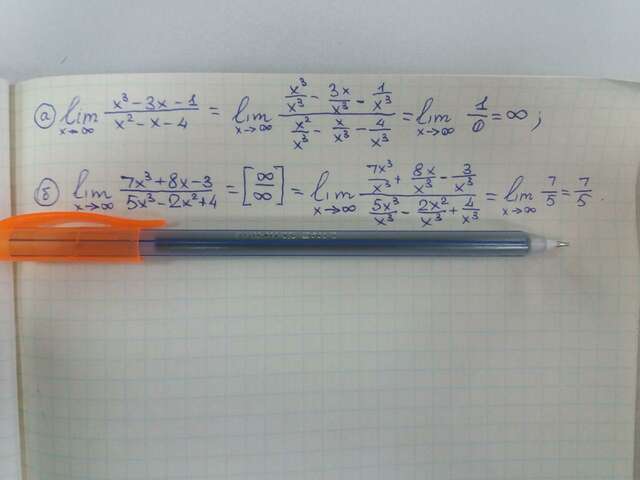 а) lim x→∞ (x³ - 3x - 1)/(x² - x - 4) = lim x→∞ (x³/x³ - 3x/x³ - 1/x³)/(x²/x³ - x/x³ - 4/x³) = lim x→∞ 1/0 = ∞ ;
б) lim x→∞ (7x³ + 8x - 3)/(5x³ - 2x² + 4) = [∞/∞] = lim x→∞ (7x³/x³ + 8x/x³ - 3/x³)/(5x³/x³ - 2x²/x³ + 4/x³) = lim x→∞ 7/5 = 7/5 .